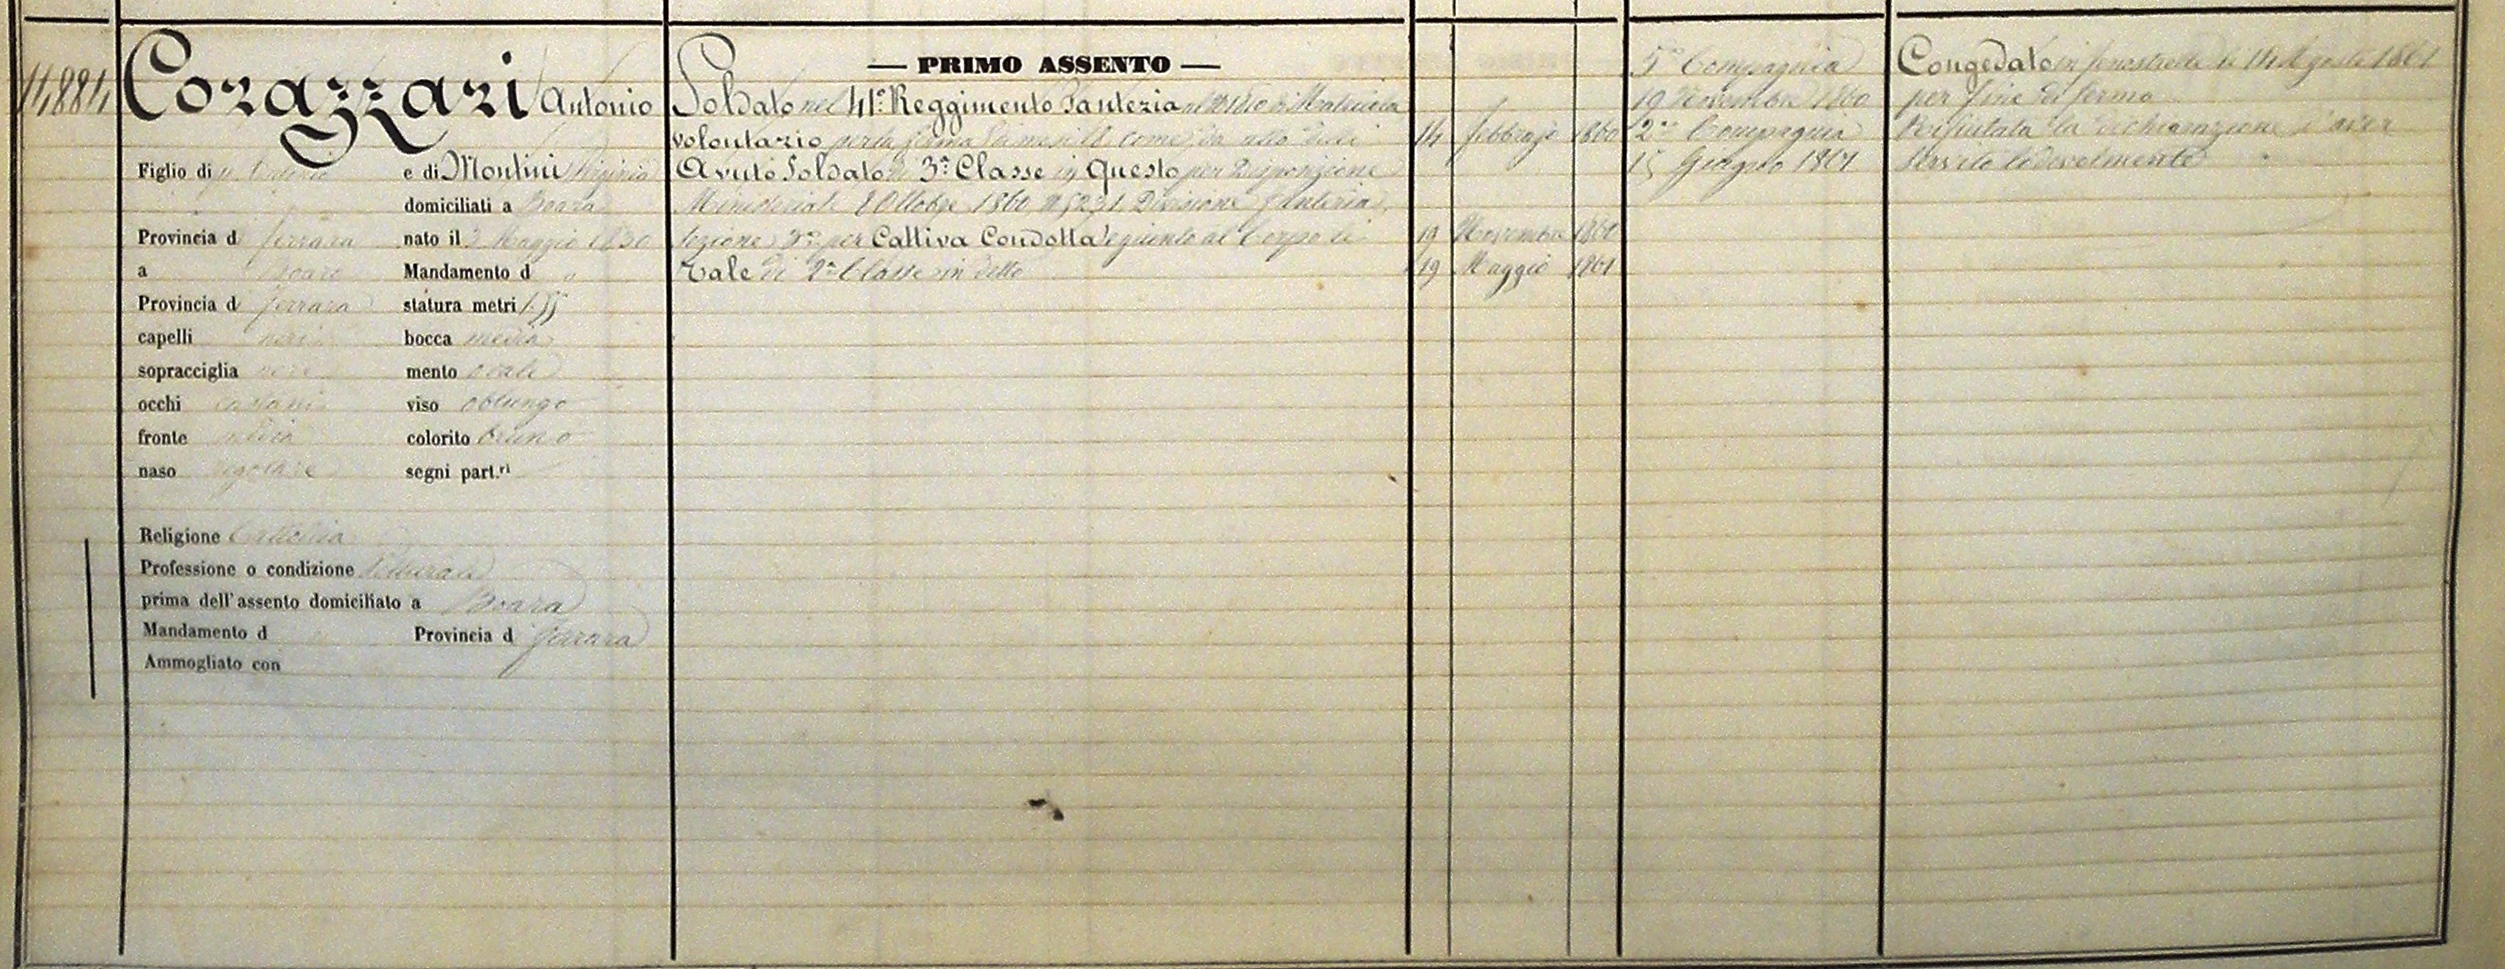 14884
Corazzari Antonio
Figlio di e di Montini Virginia
domiciliati a Boara
Provincia d Ferrara nato il 3 Maggio 1830
a Boara Mandamento d "
Provincia d Ferrara statura metri 1.55
capelli neri bocca media
sopracciglia nere mento ovale
occhi castani viso oblungo
fronte media colorito bruno
naso regolare segni part.ri
Religione Cattolica
Professione o condizione
prima dell'assento domiciliato a Boara
Mandamento d Provincia d Ferrara
Ammogliato con
— PRIMO ASSENTO —
Soldato nel 41° Reggimento Fanteria al di Matricola
volontario per la ferma di mesi 18 come da atto delli 14 febbrajo 1860
Avuto Soldato di 3ª Classe in Questo per Disposizione
Ministeriale Ottobre 1860 N 5231 Divisione Fanteria
Sezione per Cattiva Condotta e giunto al Corpo li 19 Novembre 1860
Tale di 2ª Classe in detto 19 Maggio 1861
5ª Compagnia
19 Novembre 1860
2ª Compagnia
15 Giugno 1861
Congedato in fenestrelle li 14 Agosto 1861
per fine di ferma
Rifiutata la dichiarazione d'aver
servito lodevolmente